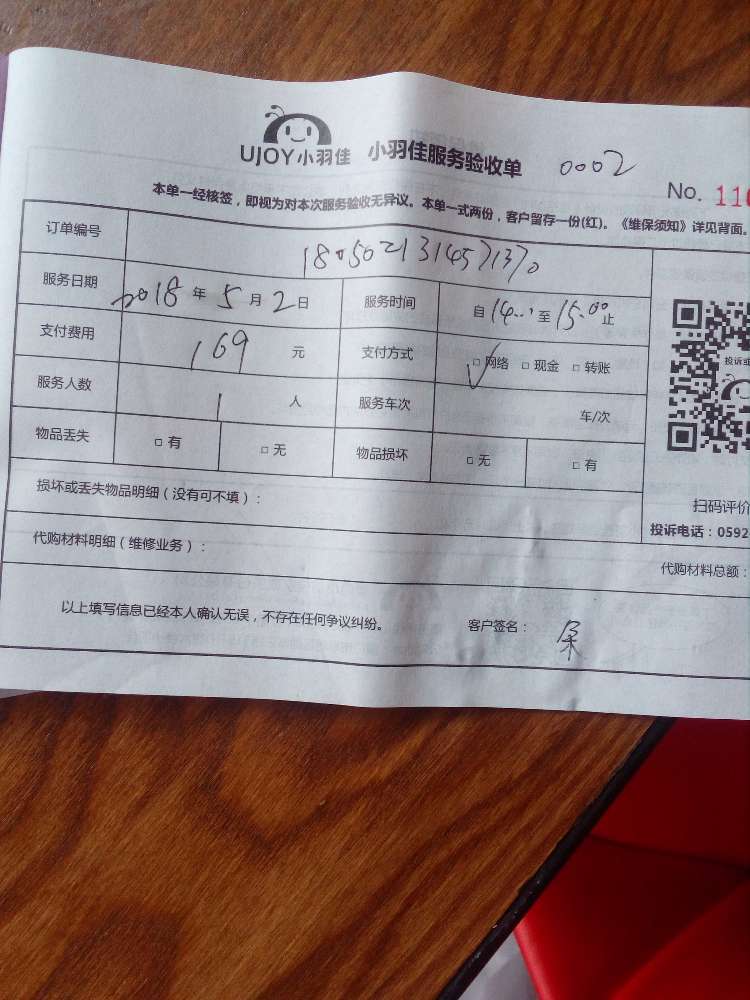 UJOY小羽佳 小羽佳服务验收单 0002
No. 110
本单一经核签，即视为对本次服务验收无异议。本单一式两份，客户留存一份(红)。《维保须知》详见背面。
订单编号 1805021314571370
服务日期 2018 年 5 月 2 日 服务时间 自 14:00 至 15:00 止
支付费用 169 元 支付方式 □ 网络 □ 现金 □ 转账
服务人数 1 人 服务车次 车/次
物品丢失 □ 有 □ 无 物品损坏 □ 无 □ 有
投诉或
扫码评价
损坏或丢失物品明细（没有可不填）：
投诉电话：0592
代购材料明细（维修业务）：
代购材料总额：
以上填写信息已经本人确认无误，不存在任何争议纠纷。 客户签名：